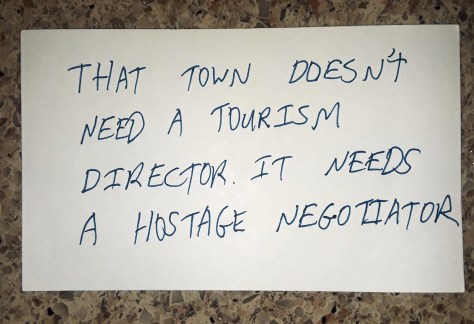 THAT TOWN DOESN'T
NEED A TOURISM
DIRECTOR. IT NEEDS
A HOSTAGE NEGOTIATOR